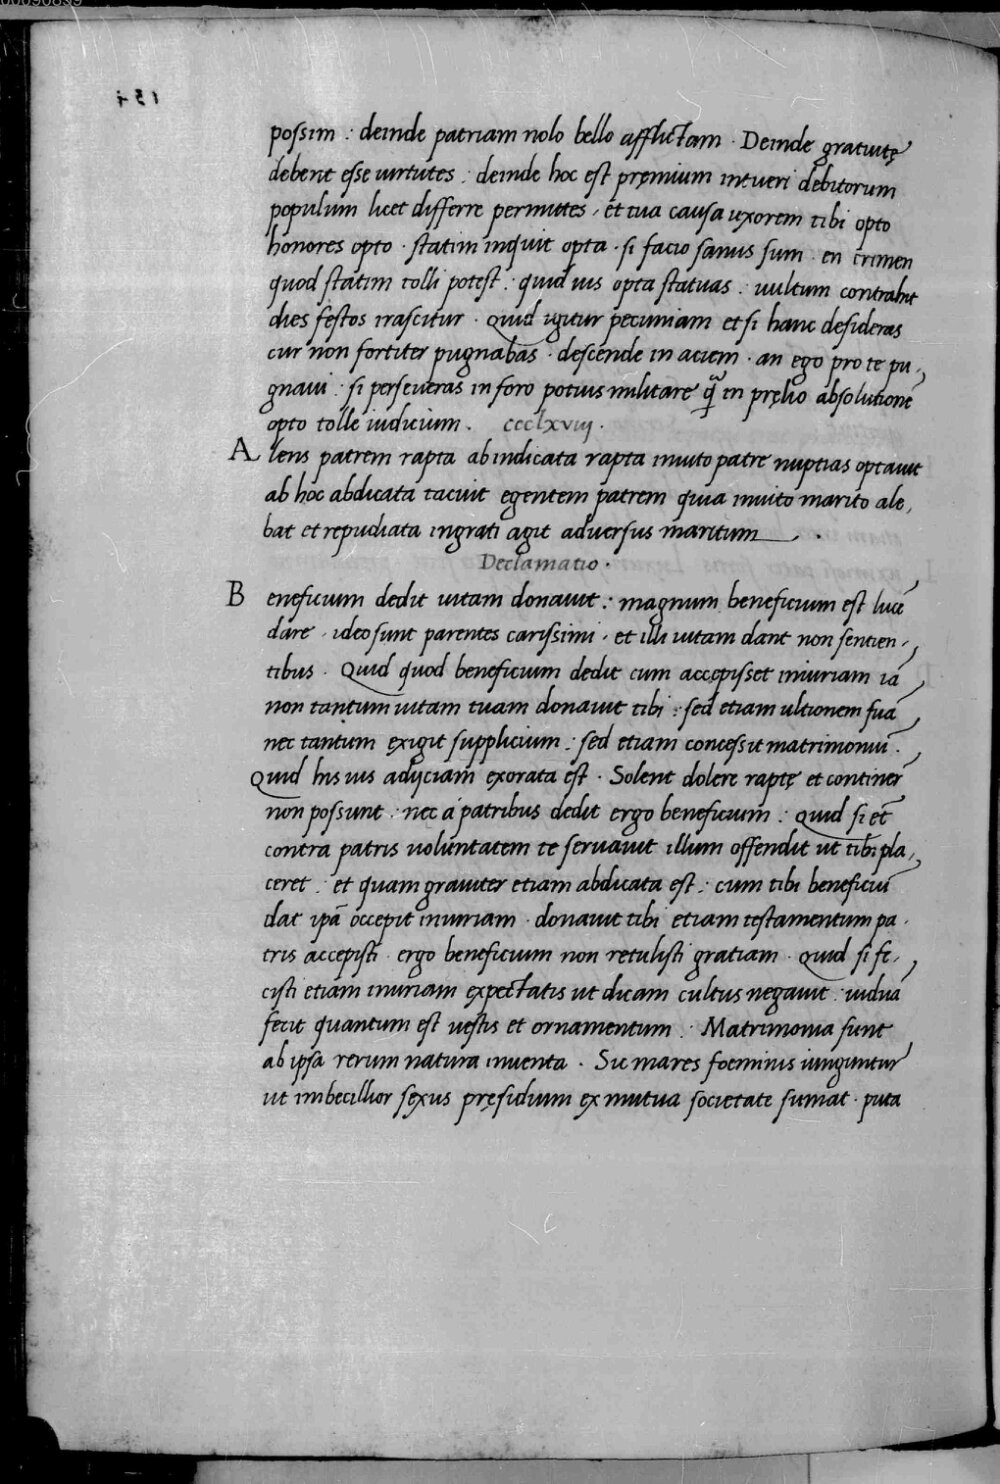 possim : deinde patriam nolo bello afflictam · Deinde gratuitę
debent esse uirtutes : deinde hoc est pręmium intueri debitorum
populum licet differre permittes · et tua causa uxorem tibi opto
honores opto · statim inquit opta · si facio sanus sum · en crimen
quod statim tolli potest : quid uis opta statuas : uultum contrahit
dies festos irascitur · Quid igitur pecuniam et si hanc desideras
cur non fortiter pugnabas · descende in aciem · an ego pro te pu,
gnaui : si perseueras in foro potius militare q̃ in pręlio absolutionē
opto tolle iudicium . ccclxviij ·
A lens patrem rapta abindicata rapta inuito patre nuptias optauit
ab hoc abdicata tacuit egentem patrem quia inuito marito ale,
bat et repudiata ingrati agit aduersus maritum .
Declamatio ·
B eneficium dedit uitam donauit : magnum beneficium est lucē
dare · ideo sunt parentes carissimi · et illi uitam dant non sentien,
tibus · Quid quod beneficium dedit cum accępisset iniuriam iā
non tantum uitam tuam donauit tibi : sed etiam ultionem suā
nec tantum exigit supplicium : sed etiam concessit matrimoniū .
Quid his uis adijciam exorata est · Solent dolere raptę et continerī
non possunt : nec á patribus dedit ergo beneficium : Quid si et̄
contra patris uoluntatem te seruauit illum offendit ut tibi pla,
ceret : et quam grauiter etiam abdicata est : cum tibi beneficiū
dat ip̄ā occepit iniuriam · donauit tibi etiam testamentum pa ·
tris accepisti · ergo beneficium non retulisti gratiam · Quid si fe,
cisti etiam iniuriam expectatis ut dicam cultus negauit : uiduā
fecit quantum est uestis et ornamentum : Matrimonia sunt
ab ipsa rerum natura inuenta · Sic mares foeminis iunguntur
ut imbecillior sęxus pręsidium ex mutua societate sumat · puta